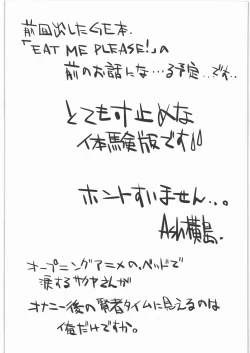 前回出したGE本.
「EAT ME PLEASE!」の
前のお話にな…る予定..です..
とても寸止めな
体験版です!!
ホントすいません...
Ash横島.
オープニングアニメの、ベッドで
涙するサクヤさんが
オナニー後の賢者タイムに見えるのは
俺だけですか。